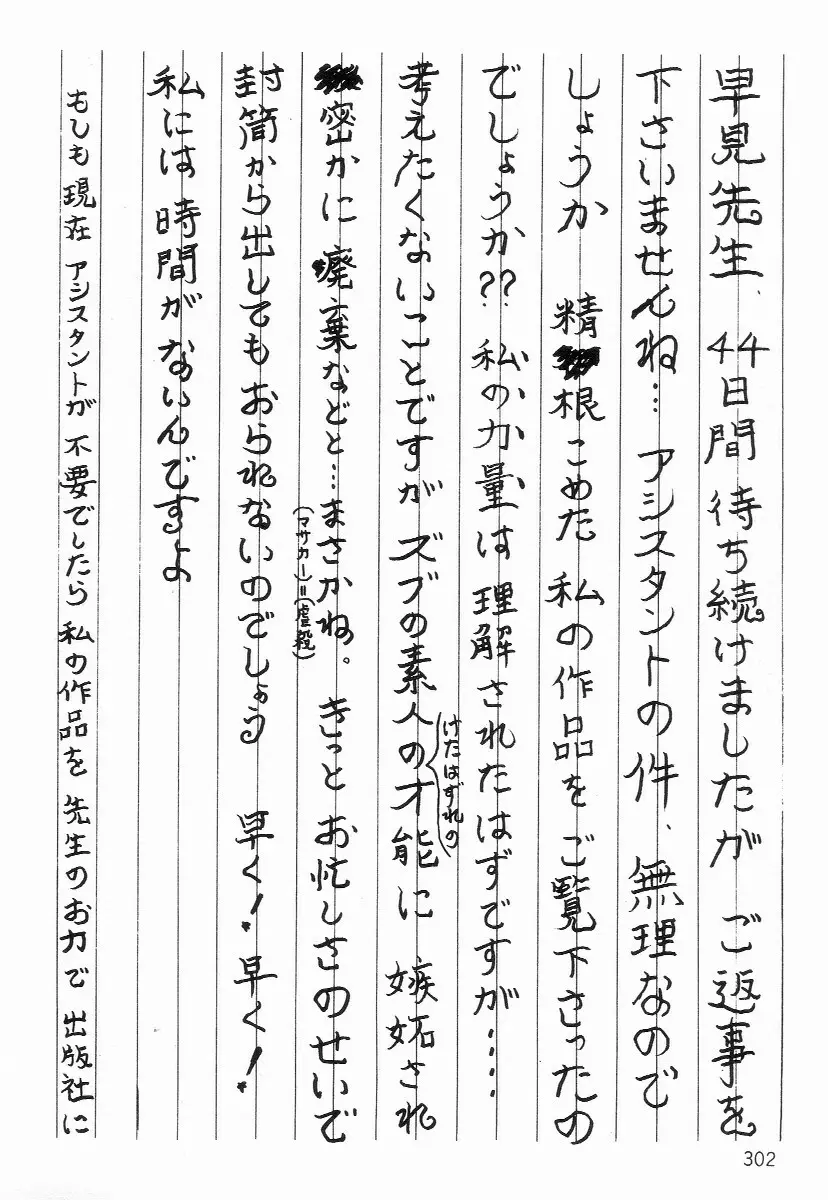 早見先生、44日間 待ち続けましたが ご返事を
下さいませんね… アシスタントの件、無理なので
しょうか 精根こめた 私の作品を ご覧下さったの
でしょうか?? 私の力量は 理解されたはずですが……
けたはずれの
考えたくないことですが ズブの素人の才能に 嫉妬され
密かに 廃棄などと… まさかね。 きっと お忙しさのせいで
(マサカー)=(虐殺)
封筒から出してもおられないのでしょう 早く! 早く!
私には 時間が ないんですよ
もしも 現在 アシスタントが 不要でしたら 私の作品を 先生のお力で 出版社に
302